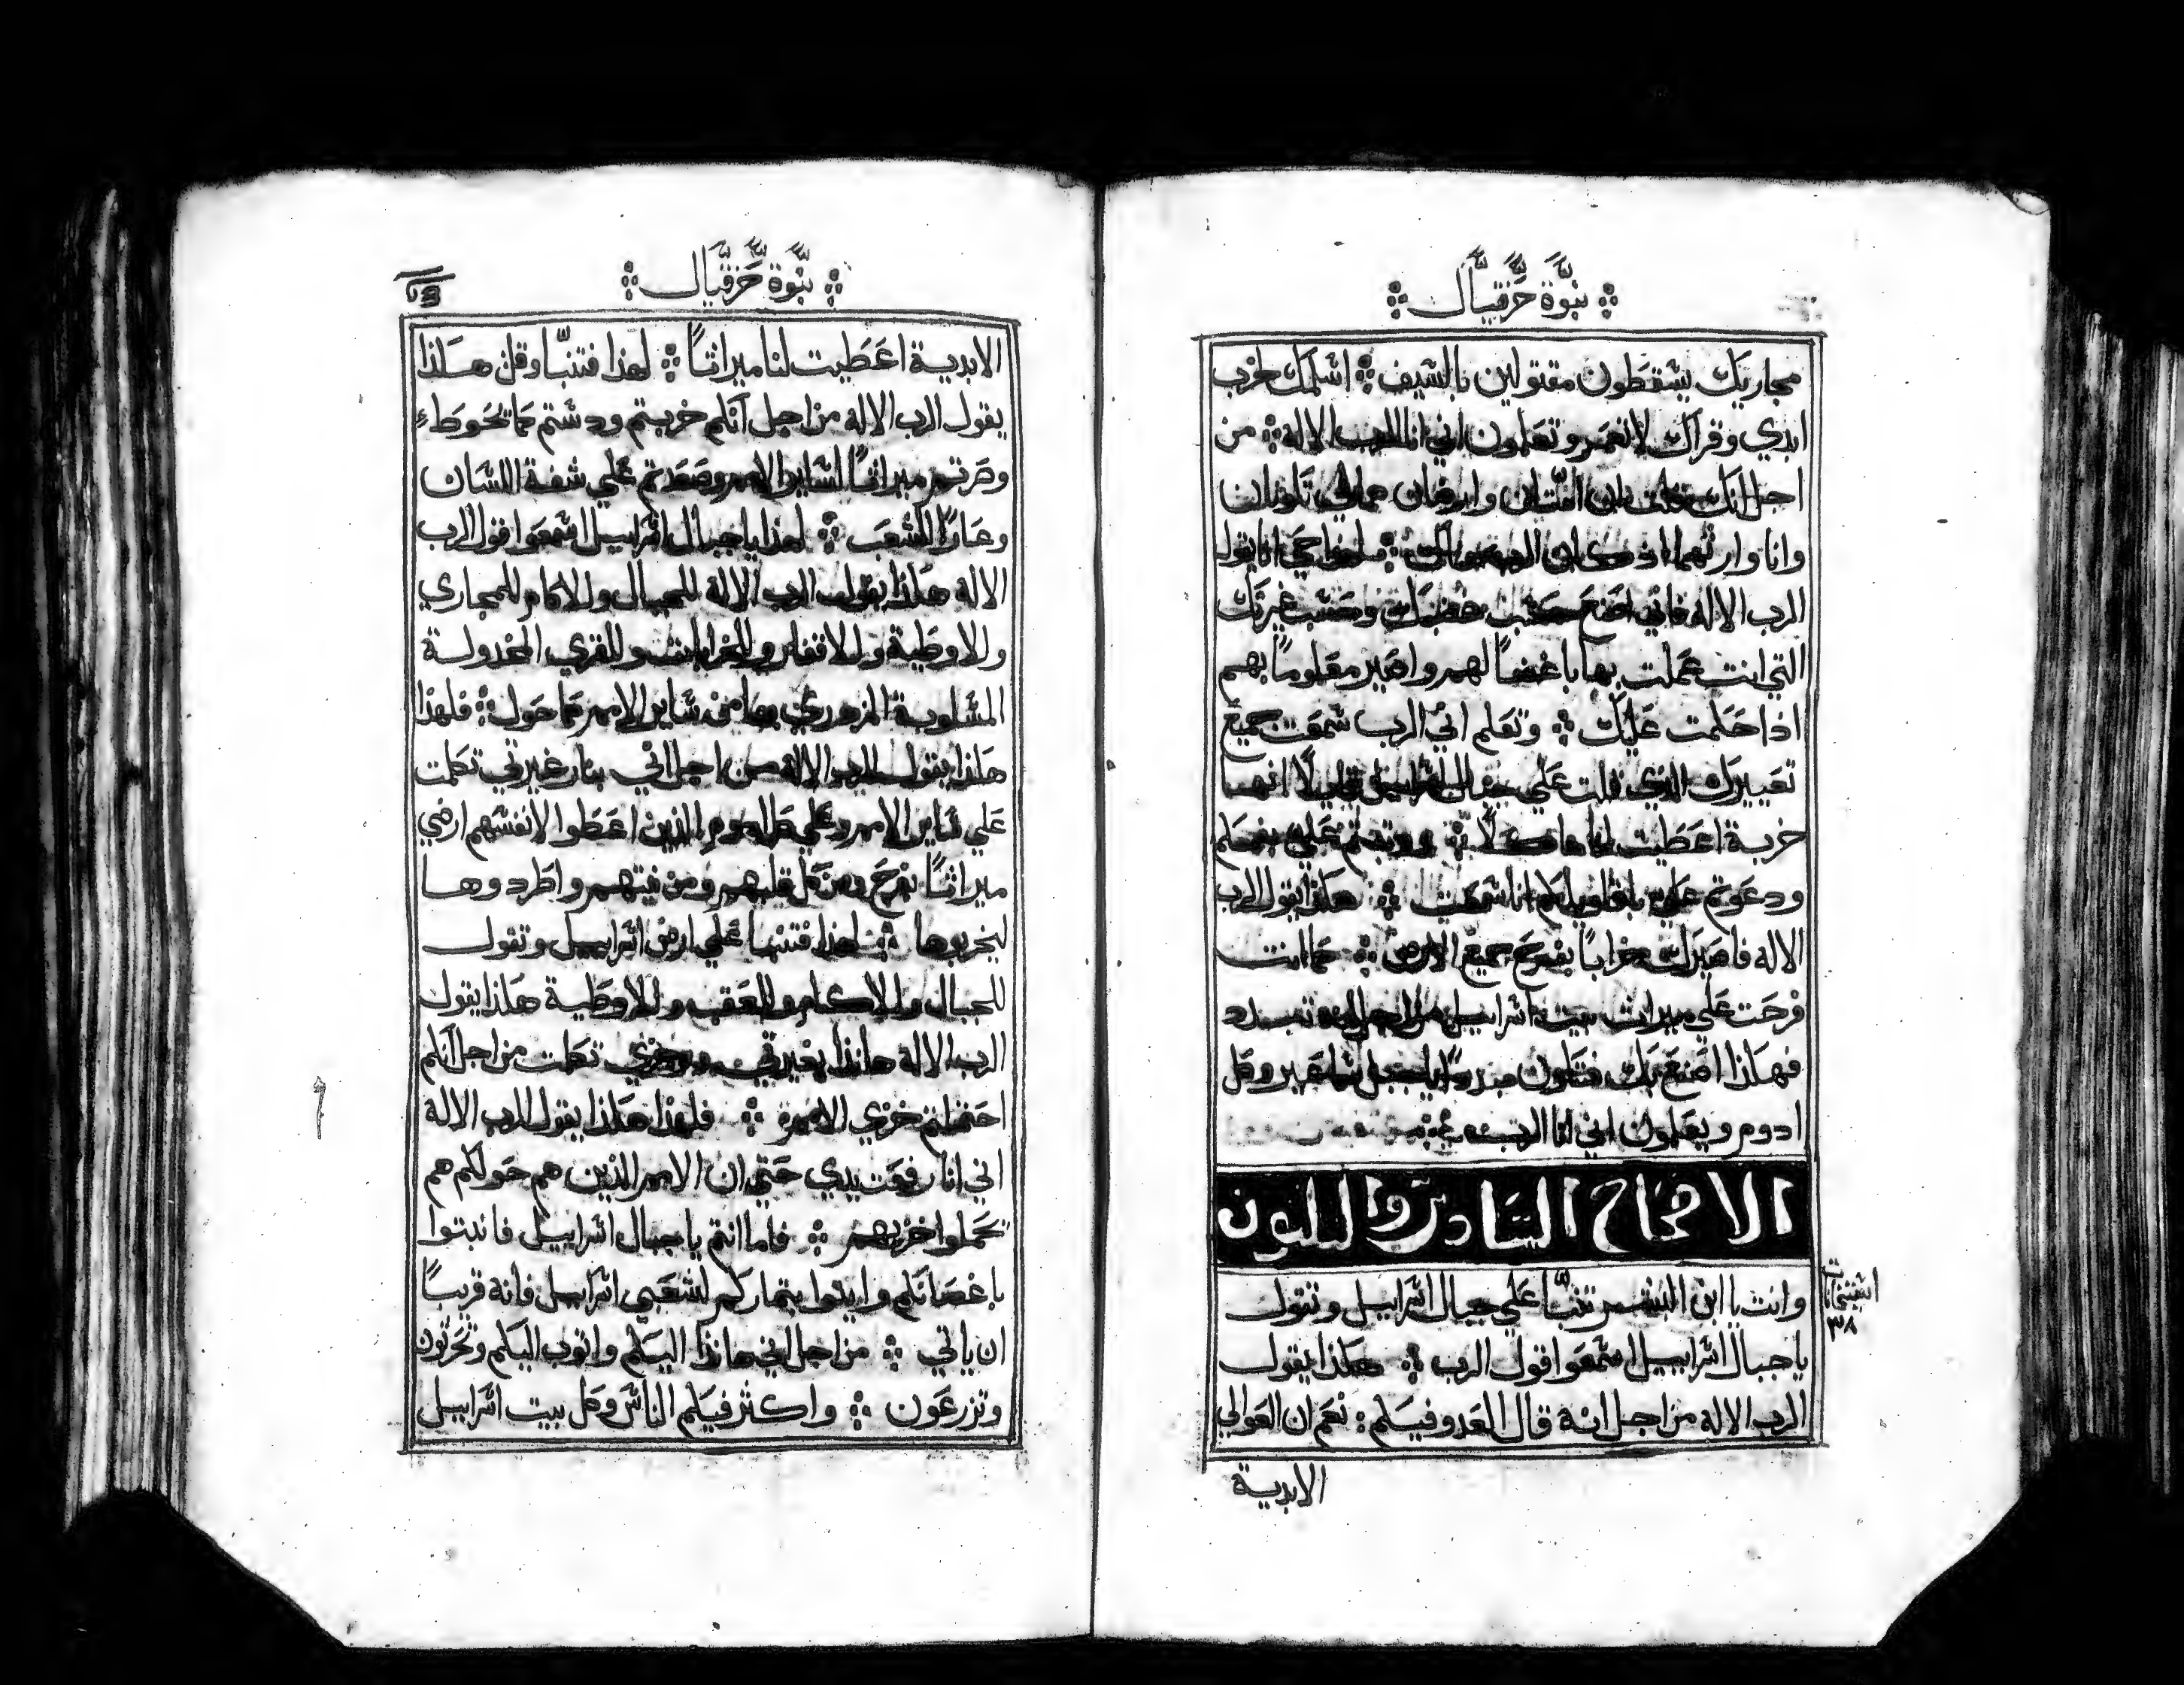 نبوة حزقيال
مجاريك يسقطون مقتولين بالسيف اسلمك خرب
ابدي وقراك لا تعمر وتعلمون اني انا الرب الاله من
اجل انك قلت ان امتان وارضان هما لي تكونان
وانا وارثهما اذ كان الرب هناك فلهذا حي انا يقول
الرب الاله فاني اصنع حسب غضبك وحسب غيرتك
التي انت عملت بها باغضا لهم واصير معلوما بهم
اذا حكمت عليك وتعلم اني الرب سمعت جميع
تعييرك الذي قلت علي جبال اسراييل قايلا انها
خربة اعطيت لنا ماكلا وقمتم علي بفمكم
ودعوتم علي باقاويلكم انا سمعت هكذا يقول الرب
الاله فاصيرك خرابا بفرح جميع الارض كما انت
فرحت علي ميراث بيت اسراييل من اجل انه تبدد
فهكذا اصنع بك فتكون مبددا يا جبل ساعير وكل
ادوم ويعلمون اني انا الرب
الاصحاح السادس والثلثون
وانت يا ابن البشر تنبا علي جبال اسراييل وتقول
يا جبال اسراييل اسمعوا قول الرب هكذا يقول
الرب الاله من اجل انه قال العدو فيكم نعم ان العوالي
٣٨
الابدية
نبوة حزقيال
الابدية اعطيت لنا ميراثا لهذا فتنبا وقل هكذا
يقول الرب الاله من اجل انكم خربتم ودستم كما تحوط
وصرتم ميراثا لساير الامم وصعدتم علي شفة اللسان
وعارا للشعب لهذا يا جبال اسراييل اسمعوا قول الرب
الاله هكذا يقول الرب الاله للجبال وللاكام للمجاري
وللاوطية وللاقفار وللخرابات وللقري المخدولة
المسلوبة المزدري بها من ساير الامم كما حول فلهذا
هكذا يقول الرب الاله من اجل اني بنار غيرتي تكلمت
علي ساير الامم وعلي كل ادوم الذين اعطوا لانفسهم ارضي
ميراثا بفرح ومن كل قلبهم ومن نيتهم واطردوها
ليخربوها لهذا فتنبا علي ارض اسراييل وتقول
للجبال وللاكام وللعقب وللاوطية هكذا يقول
الرب الاله هانذا بغيرتي وبرجزي تكلمت من اجل انكم
احتملتم خزي الامم فلهذا هكذا يقول الرب الاله
اني انا رفعت يدي حتي ان الامم الذين هم حولكم هم
يحملوا خزيهم فاما انتم يا جبال اسراييل فانبتوا
باغصانكم وايتوا بثماركم لشعبي اسراييل فانه قريبا
ان ياتي من اجل اني هانذا اليكم واتوب اليكم وتحرثون
وتزرعون واكثر فيكم الناس وكل بيت اسراييل